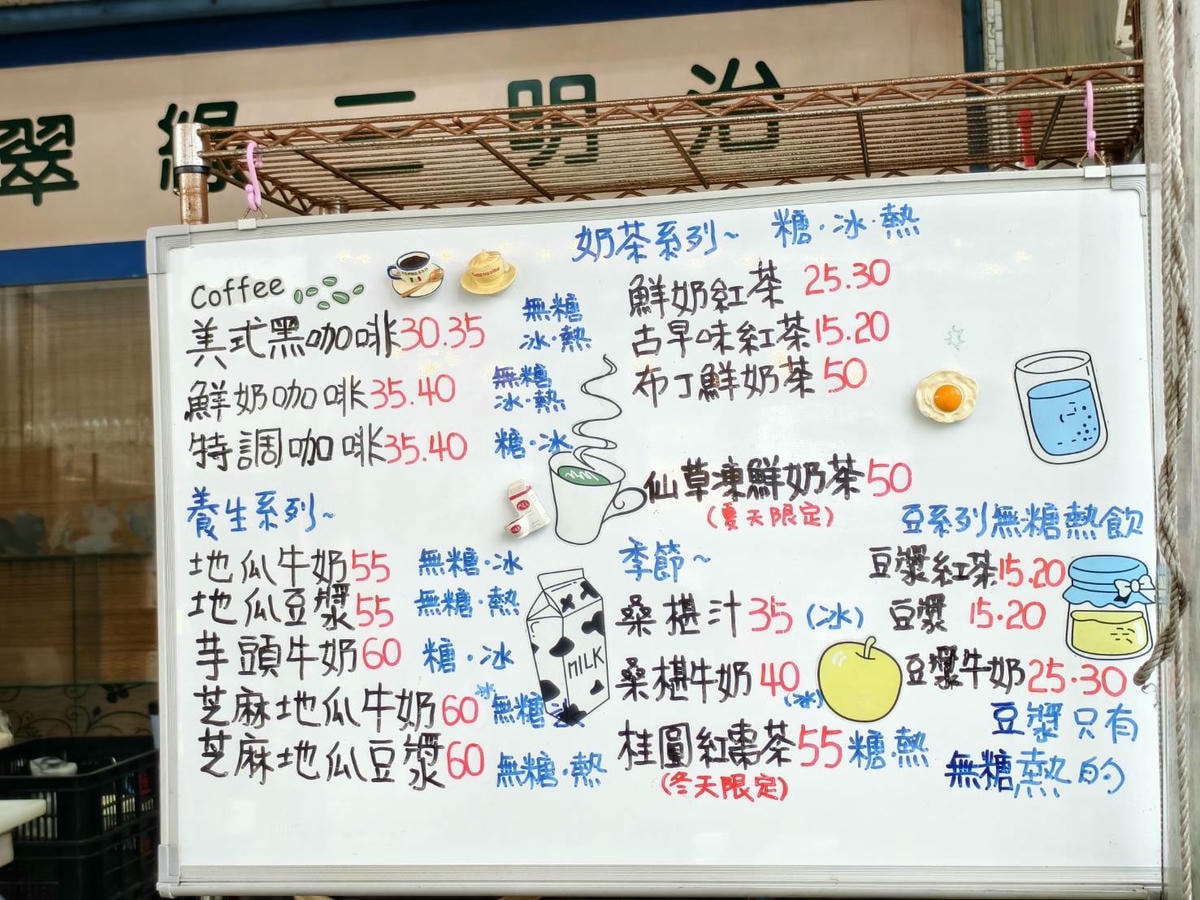 翠緣三明治
Coffee
美式黑咖啡30.35 無糖 冰·熱
鮮奶咖啡35.40 無糖 冰·熱
特調咖啡35.40 糖·冰
養生系列~
地瓜牛奶55 無糖·冰
地瓜豆漿55 無糖·熱
芋頭牛奶60 糖·冰
芝麻地瓜牛奶60 冰 無糖
芝麻地瓜豆漿60 無糖·熱
MILK
奶茶系列~ 糖·冰·熱
鮮奶紅茶 25.30
古早味紅茶15.20
布丁鮮奶茶50
仙草凍鮮奶茶50
(夏天限定)
季節~
桑椹汁35 (冰)
桑椹牛奶40 (冰)
桂圓紅棗茶55 糖·熱
(冬天限定)
豆系列無糖熱飲
豆漿紅茶15.20
豆漿 15.20
豆漿牛奶25·30
豆漿只有
無糖熱的